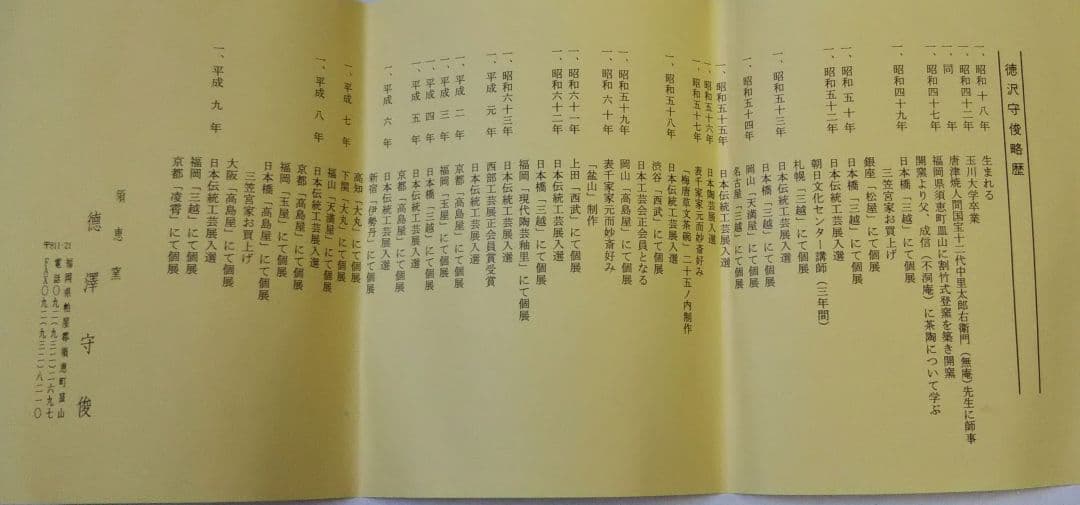 徳沢守俊略歴
一、昭和十八年　生まれる
一、昭和四二年　玉川大学卒業
唐津焼人間国宝十二代中里太郎右衛門(無庵)先生に師事
一、同　年　福岡県須恵町皿山に割竹式登窯を築き開窯
一、昭和四七年　開窯より父、成信(不洞庵)に茶陶について学ぶ
一、昭和四九年　日本橋「三越」にて個展
三笠宮家お買上げ
銀座「松屋」にて個展
一、昭和五十年　日本橋「三越」にて個展
一、昭和五二年　日本伝統工芸展入選
朝日文化センター講師(三年間)
札幌「三越」にて個展
一、昭和五十三年　日本伝統工芸展入選
日本橋「三越」にて個展
一、昭和五十四年　岡山「天満屋」にて個展
名古屋「三越」にて個展
一、昭和五十五年　日本伝統工芸展入選
一、昭和五十六年　日本陶芸展入選
一、昭和五十七年　表千家家元而妙斎好み
「梅唐草文茶碗」二十五ノ内制作
一、昭和五十八年　日本伝統工芸展入選
渋谷「西武」にて個展
一、昭和五十九年　日本工芸会正会員となる
岡山「高島屋」にて個展
一、昭和六十年　表千家家元而妙斎好み
「盆山」制作
一、昭和六十一年　上田「西武」にて個展
一、昭和六十二年　日本伝統工芸展入選
日本橋「三越」にて個展
福岡「現代陶芸釉里」にて個展
一、昭和六十三年　日本伝統工芸展入選
一、平成元年　西部工芸展正会員賞受賞
日本伝統工芸展入選
一、平成二年　京都「高島屋」にて個展
一、平成三年　福岡「玉屋」にて個展
一、平成四年　日本橋「三越」にて個展
一、平成五年　京都「高島屋」にて個展
日本伝統工芸展入選
一、平成六年　新宿「伊勢丹」にて個展
高知「大丸」にて個展
一、平成七年　下関「大丸」にて個展
福山「天満屋」にて個展
一、平成八年　日本伝統工芸展入選
京都「高島屋」にて個展
福岡「玉屋」にて個展
日本橋「高島屋」にて個展
三笠宮家お買上げ
大阪「高島屋」にて個展
一、平成九年　日本伝統工芸展入選
福岡「三越」にて個展
京都「凌霄」にて個展
須恵窯
德澤守俊
〒811-21　福岡県粕屋郡須恵町皿山
電話〇九二(九三二)二六九七
FAX〇九二(九三二)八二一〇